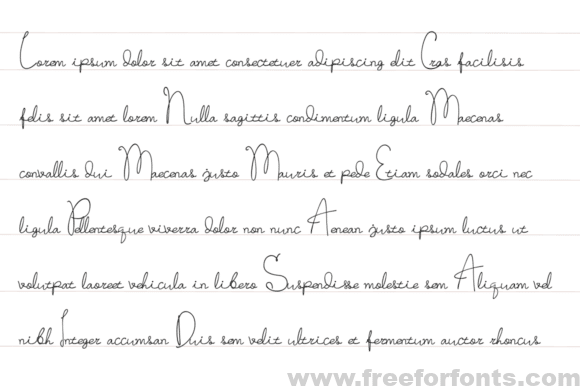 Lorem ipsum dolor sit amet consectetuer adipiscing elit Cras facilisis
felis sit amet lorem Nulla sagittis condimentum ligula Maecenas
convallis dui Maecenas justo Mauris et pede Etiam sodales orci nec
ligula Pellentesque viverra dolor non nunc Aenean justo ipsum luctus ut
volutpat laoreet vehicula in libero Suspendisse molestie sem Aliquam vel
nibh Integer accumsan Duis sem velit ultrices et fermentum auctor rhoncus
www.freeforfonts.com